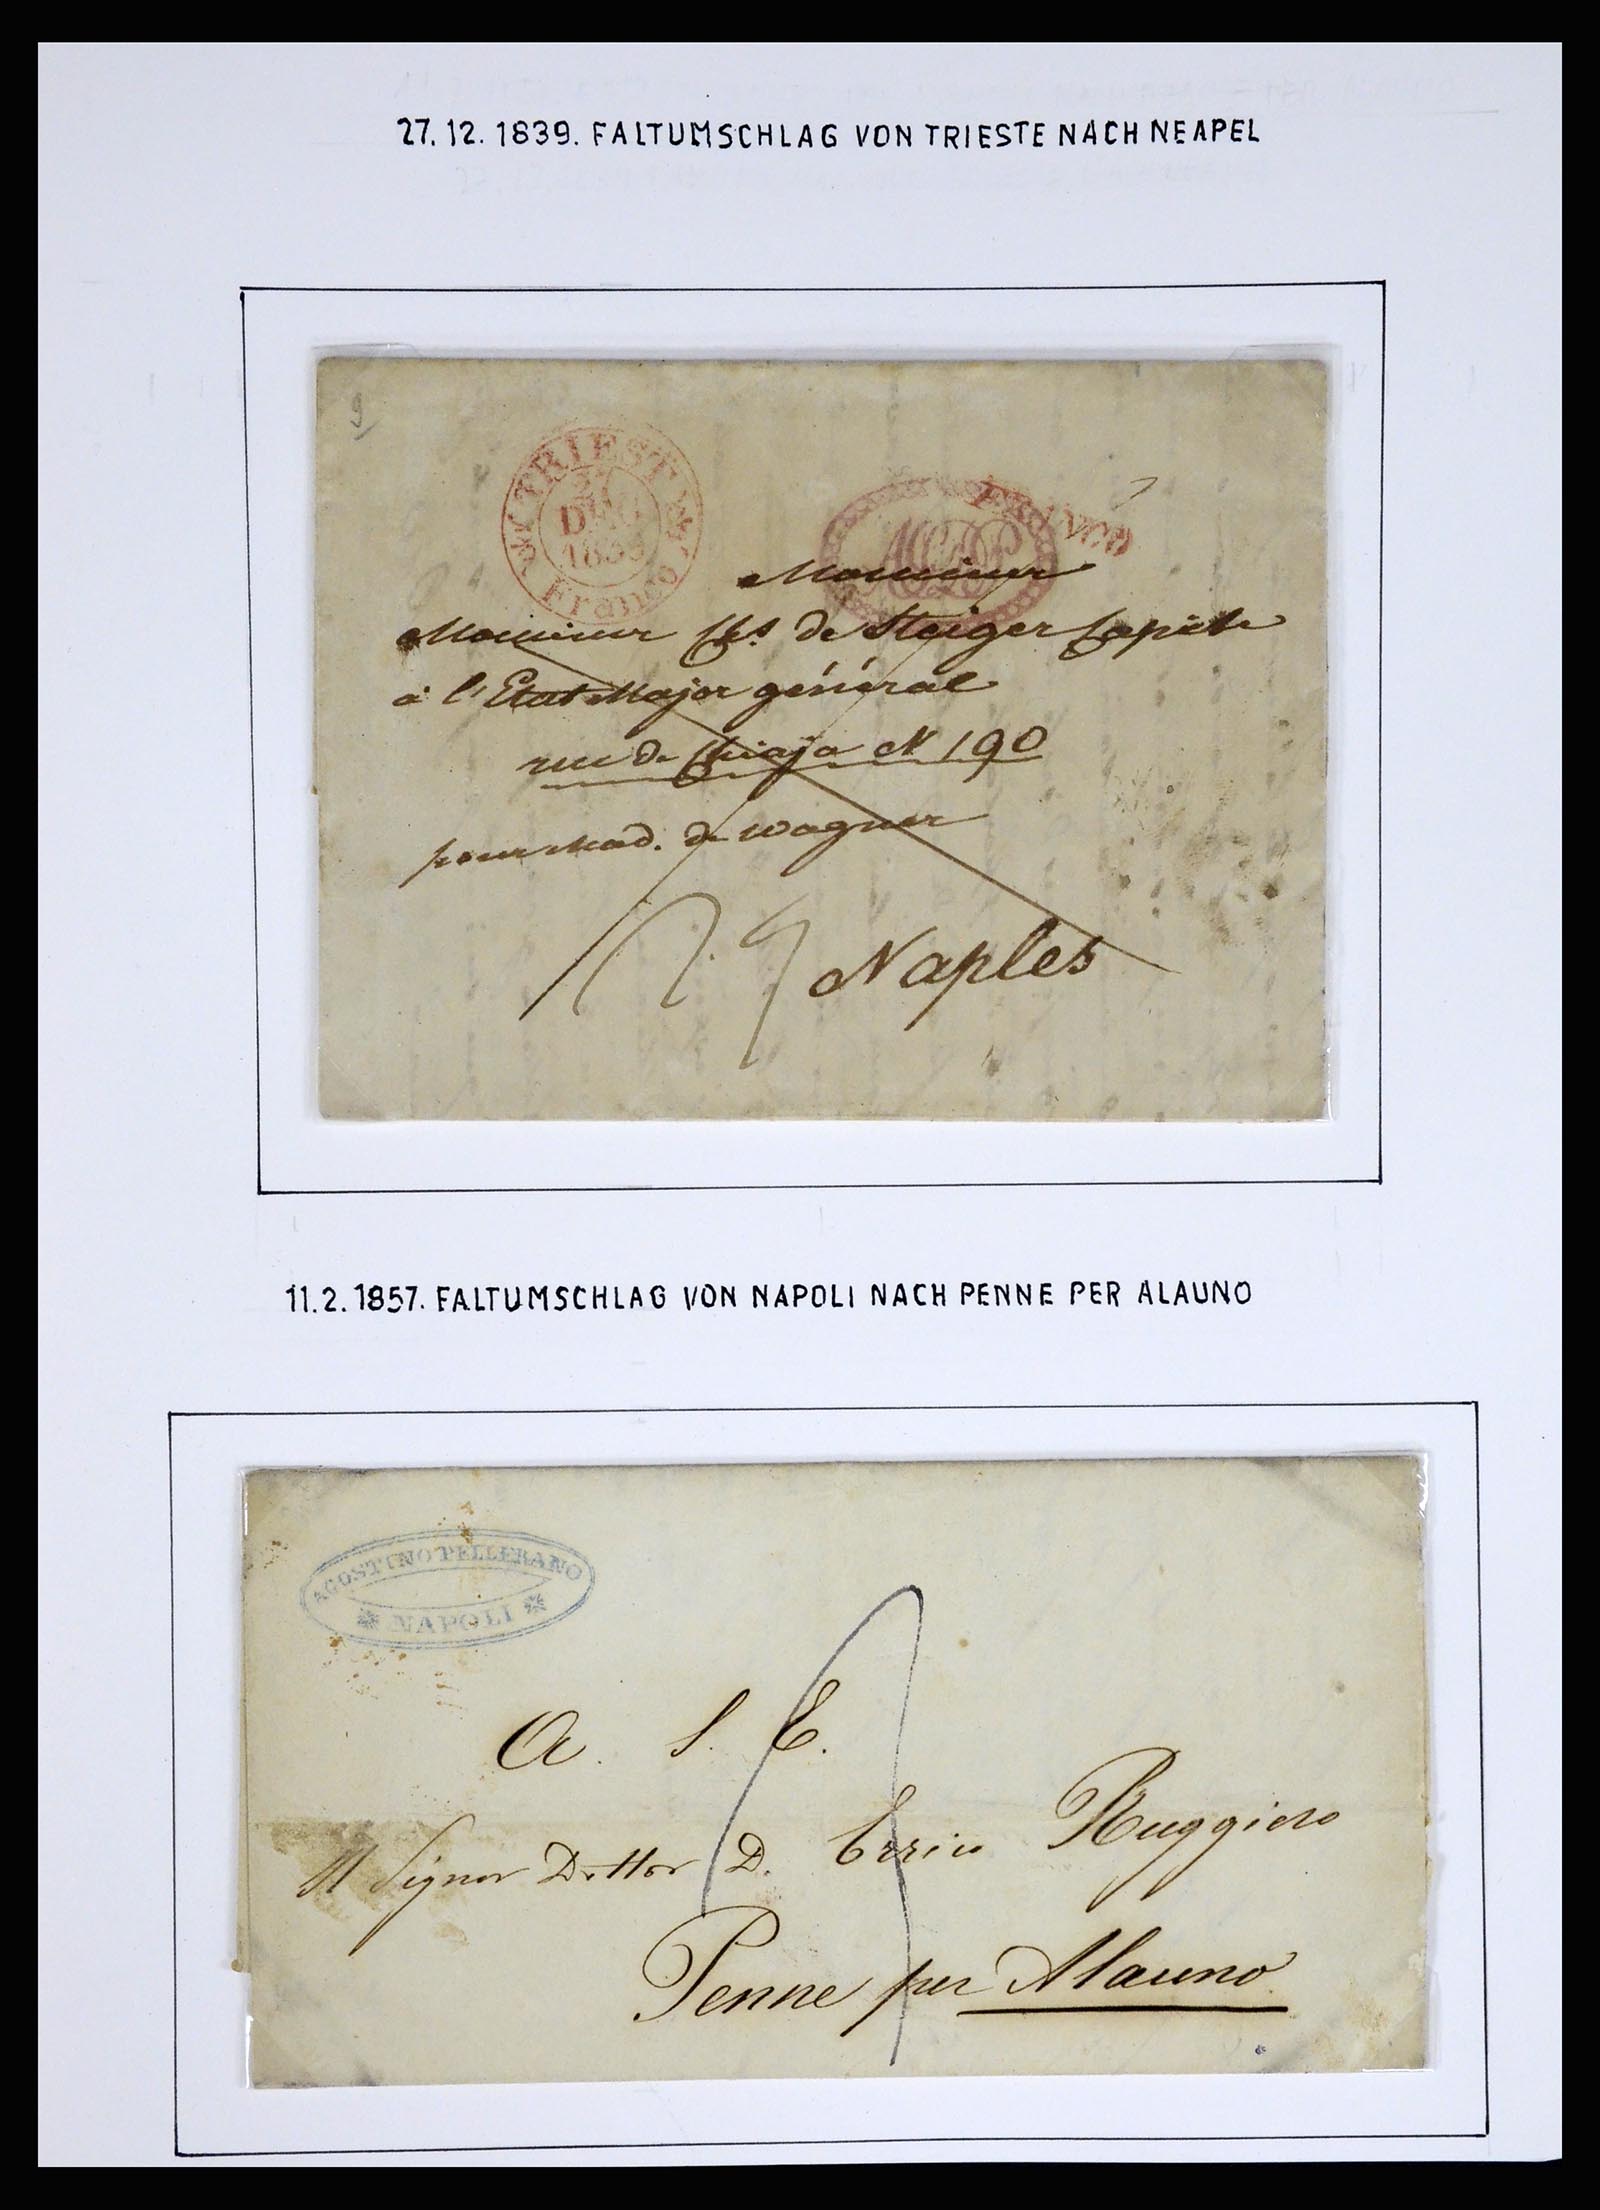 27. 12. 1839. FALTUMSCHLAG VON TRIESTE NACH NEAPEL
TRIEST
27
DEC
1839
Franco
FRANCO
AGDP
Monsieur
Monsieur Chs. de Steiger Capit
à l'Etat Major général
rue de Chiaja N 190
pour Mad. de Wagner
Naples
11. 2. 1857. FALTUMSCHLAG VON NAPOLI NACH PENNE PER ALAUNO
AGOSTINO PELLERANO
NAPOLI
A. S. E.
Il Signor Dottor D. Errico Ruggiero
Penne per Alauno